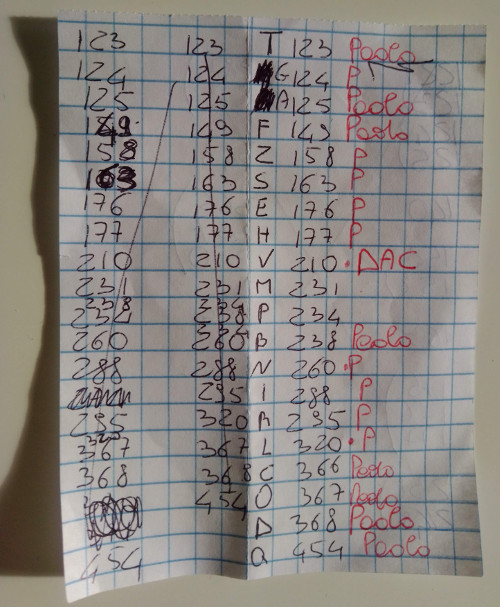 123 123 T 123 Paolo
124 124 G 124 P
125 125 A 125 Paolo
149 149 F 149 Paolo
158 158 Z 158 P
163 163 S 163 P
176 176 E 176 P
177 177 H 177 P
210 210 V 210 • DAC
231 231 M 231
234 P 234
238 238 B 238 Paolo
260 260 N 260 • P
288 288 I 288 P
295 295 R 295 P
320 L 320 • P
367 367 C 366 Paolo
368 368 O 367 Paolo
454 D 368 Paolo
454 Q 454 Paolo